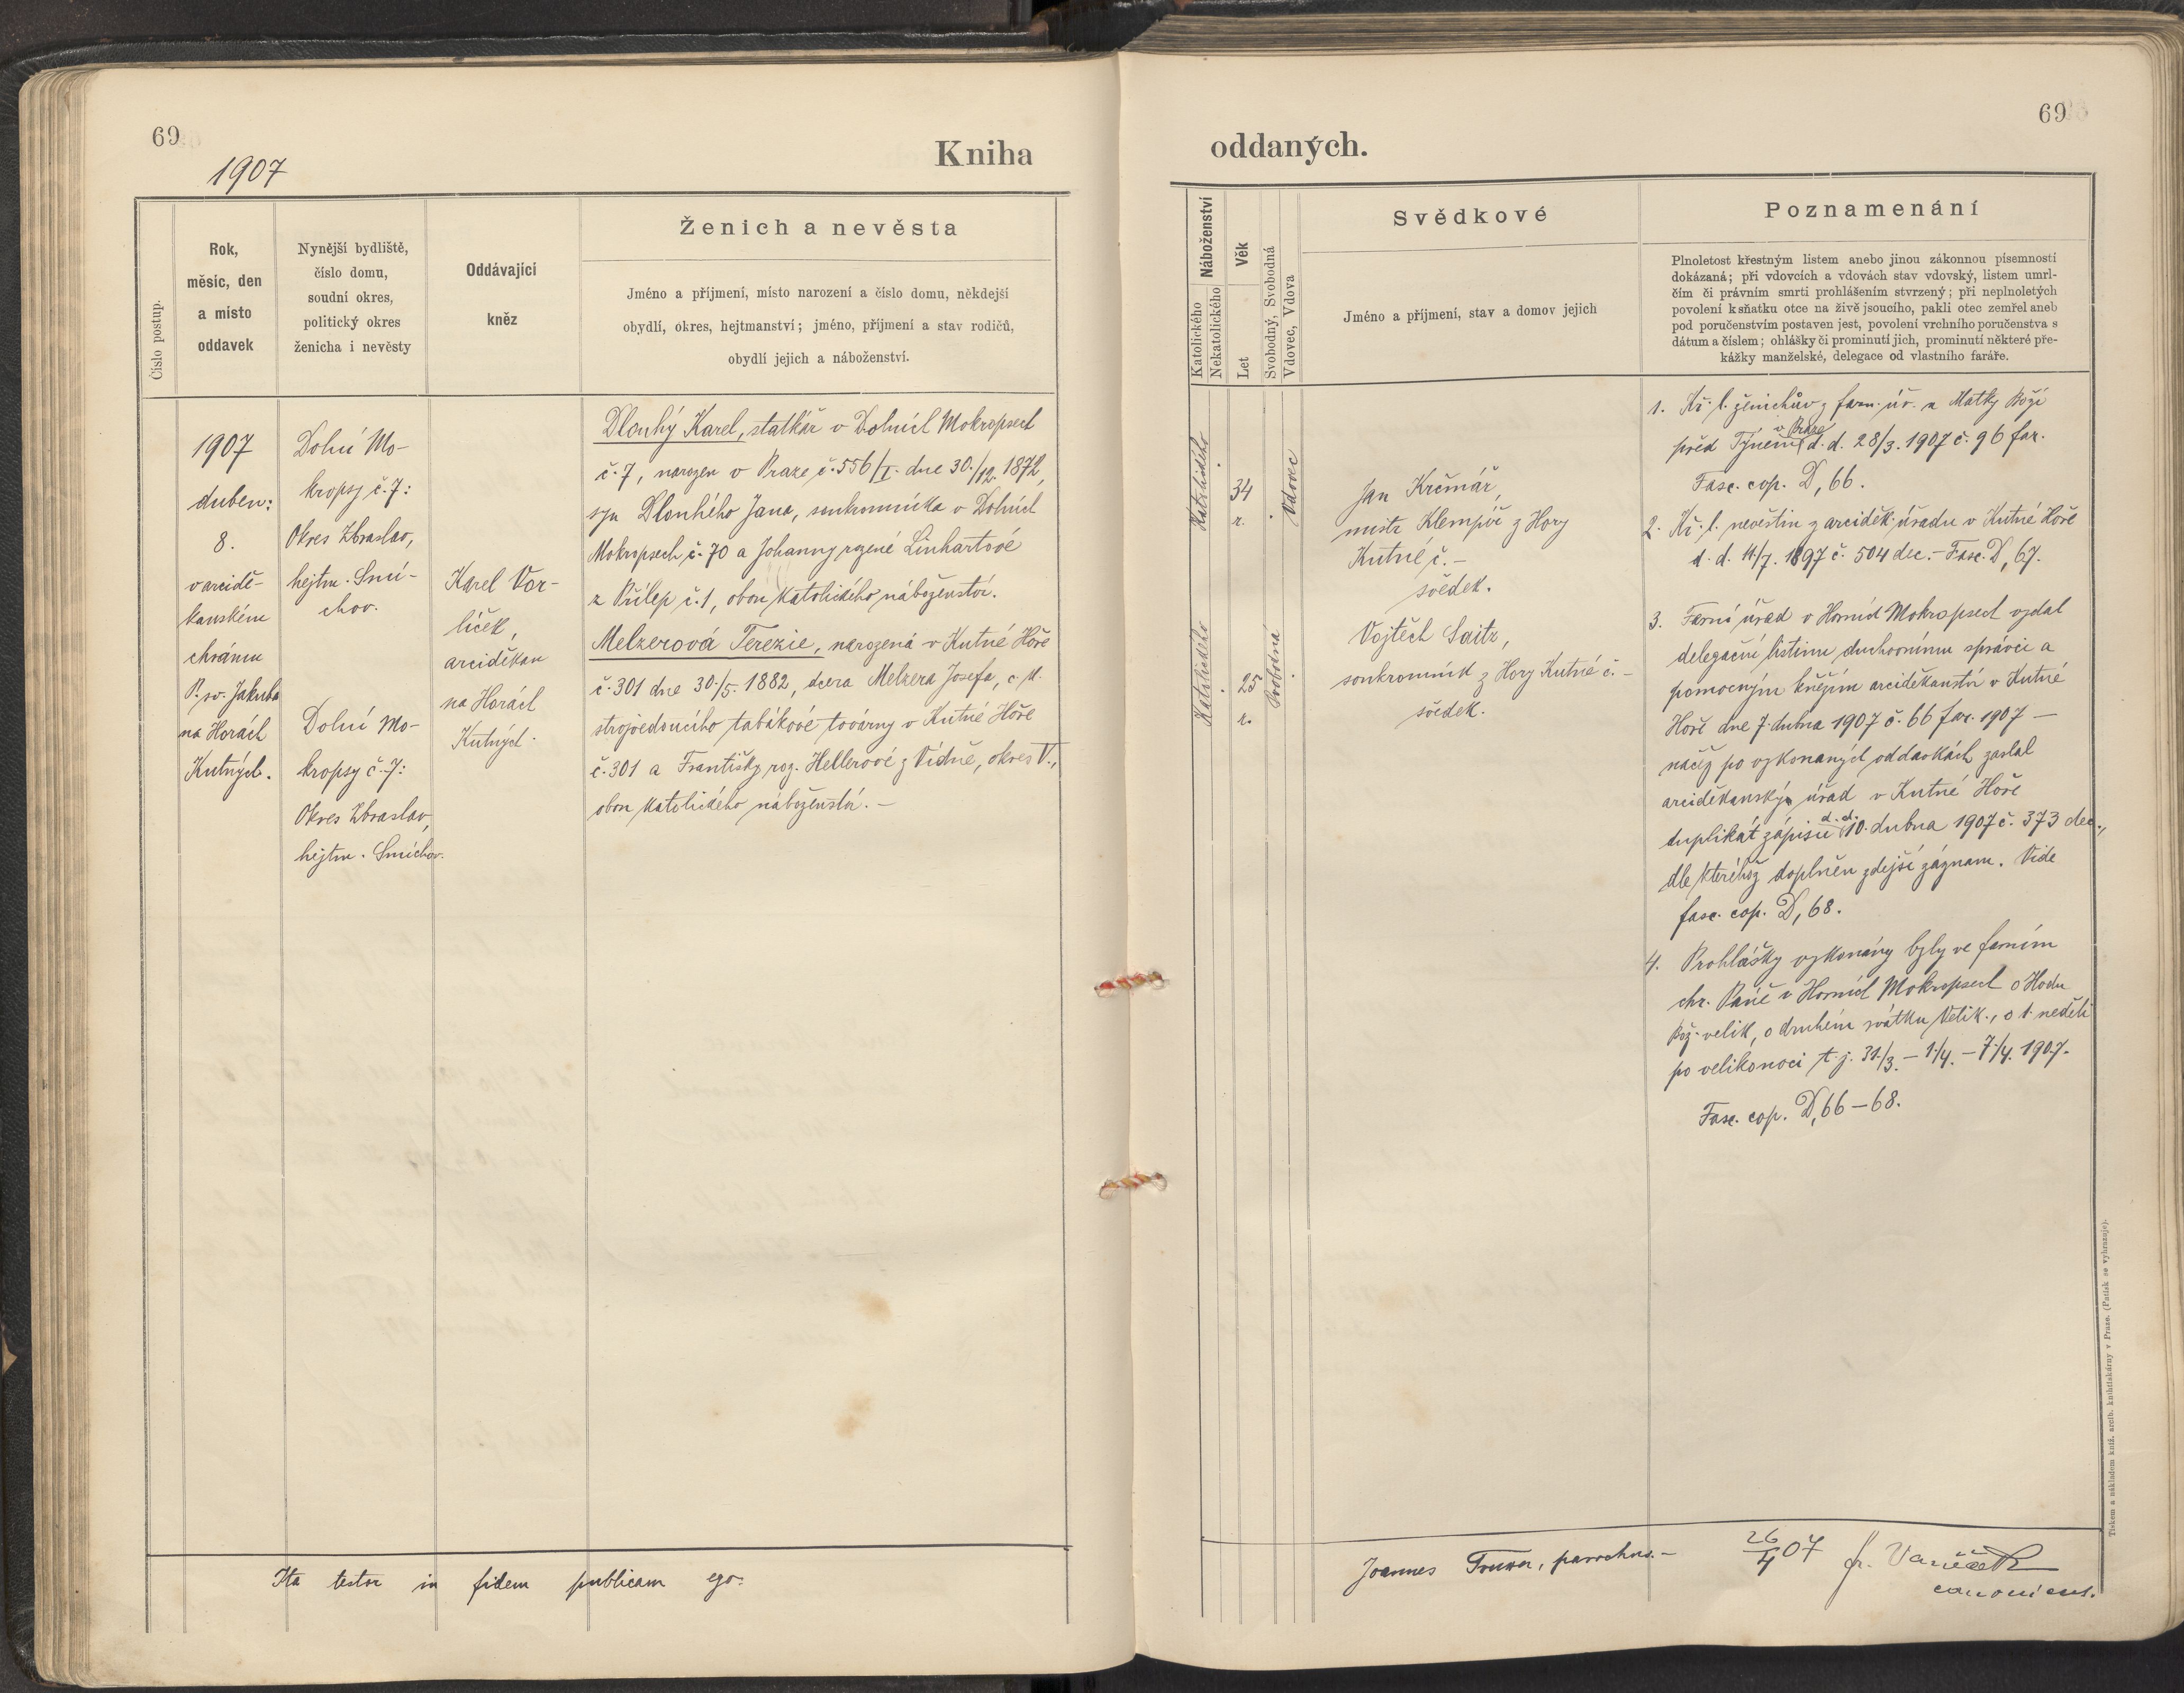 69
1907
Kniha
Číslo postup.
Rok,
měsíc, den
a místo
oddavek
Nynější bydliště,
číslo domu,
soudní okres,
politický okres
ženicha i nevěsty
Oddávající
kněz
Ženich a nevěsta
Jméno a příjmení, místo narození a číslo domu, někdejší
obydlí, okres, hejtmanství; jméno, příjmení a stav rodičů,
obydlí jejich a náboženství.
1907
duben:
8.
v arcidě-
kanském
chrámu
P. sv. Jakuba
na Horách
Kutných.
Dolní Mo-
kropsy č. 7:
Okres Zbraslav,
hejtm. Smí-
chov.
Dolní Mo-
kropsy č. 7:
Okres Zbraslav,
hejtm. Smíchov.
Karel Vor-
líček,
arciděkan
na Horách
Kutných.
Dlouhý Karel, statkář v Dolních Mokropsech
č. 7, narozen v Praze č. 556/I. dne 30./12. 1872,
syn Dlouhého Jana, soukromníka v Dolních
Mokropsech č. 70 a Johanny rozené Linhartové
z Přílep č. 1, obou katolického náboženství.
Melzerová Terezie, narozená v Kutné Hoře
č. 301 dne 30./5. 1882, dcera Melzera Josefa, c. k.
strojvedoucího tabákové továrny v Kutné Hoře
č. 301 a Františky roz. Hellerové z Vídně, okres V.,
obou katolického náboženství. –
Ita testor in fidem publicam ego:
69
oddaných.
Náboženství
Katolického
Nekatolického
Věk
Let
Svobodný, Svobodná
Vdovec, Vdova
Svědkové
Jméno a příjmení, stav a domov jejich
Poznamenání
Plnoletost křestným listem anebo jinou zákonnou písemností
dokázaná; při vdovcích a vdovách stav vdovský, listem umrl-
čím či právním smrti prohlášením stvrzený; při neplnoletých
povolení k sňatku otce na živě jsoucího, pakli otec zemřel aneb
pod poručenstvím postaven jest, povolení vrchního poručenstva s
dátum a číslem; ohlášky či prominutí jich, prominutí některé pře-
kážky manželské, delegace od vlastního faráře.
Katolického
34
r.
Vdovec
Katolického
25
r.
Svobodná
Jan Krčmář,
mistr klempíř z Hory
Kutné č. –
svědek.
Vojtěch Saitz,
soukromník z Hory Kutné č. –
svědek.
1. Kř. l. ženichův z farn. úř. u Matky Boží
před Týnem v Praze d. d. 28/3. 1907 č. 96 far.
Fasc. cop. D, 66.
2. Kř. l. nevěstin z arciděk. úřadu v Kutné Hoře
d. d. 14/7. 1897 č. 504 dec. – Fasc. D, 67.
3. Farní úřad v Horních Mokropsech vydal
delegační listinu duchovnímu správci a
pomocným kněžím arciděkanství v Kutné
Hoře dne 7. dubna 1907 č. 66 far. 1907 –
načež po vykonaných oddavkách zaslal
arciděkanský úřad v Kutné Hoře
duplikát zápisu d. d. 10. dubna 1907 č. 373 dec.,
dle kteréhož doplněn zdejší záznam. Vide
fasc. cop. D, 68.
4. Prohlášky vykonány byly ve farním
chr. Páně v Horních Mokropsech o Hodu
Bož. velik, o druhém svátku Velik., o 1. neděli
po velikonoci t. j. 31./3. – 1./4. – 7./4. 1907.
Fasc. cop. D, 66–68.
Joannes parochus. –
26/4 07 fr. Vaněček
canonicus.
Tiskem a nákladem kníž. arcib. knihtiskárny v Praze. (Patisk se vyhrazuje).